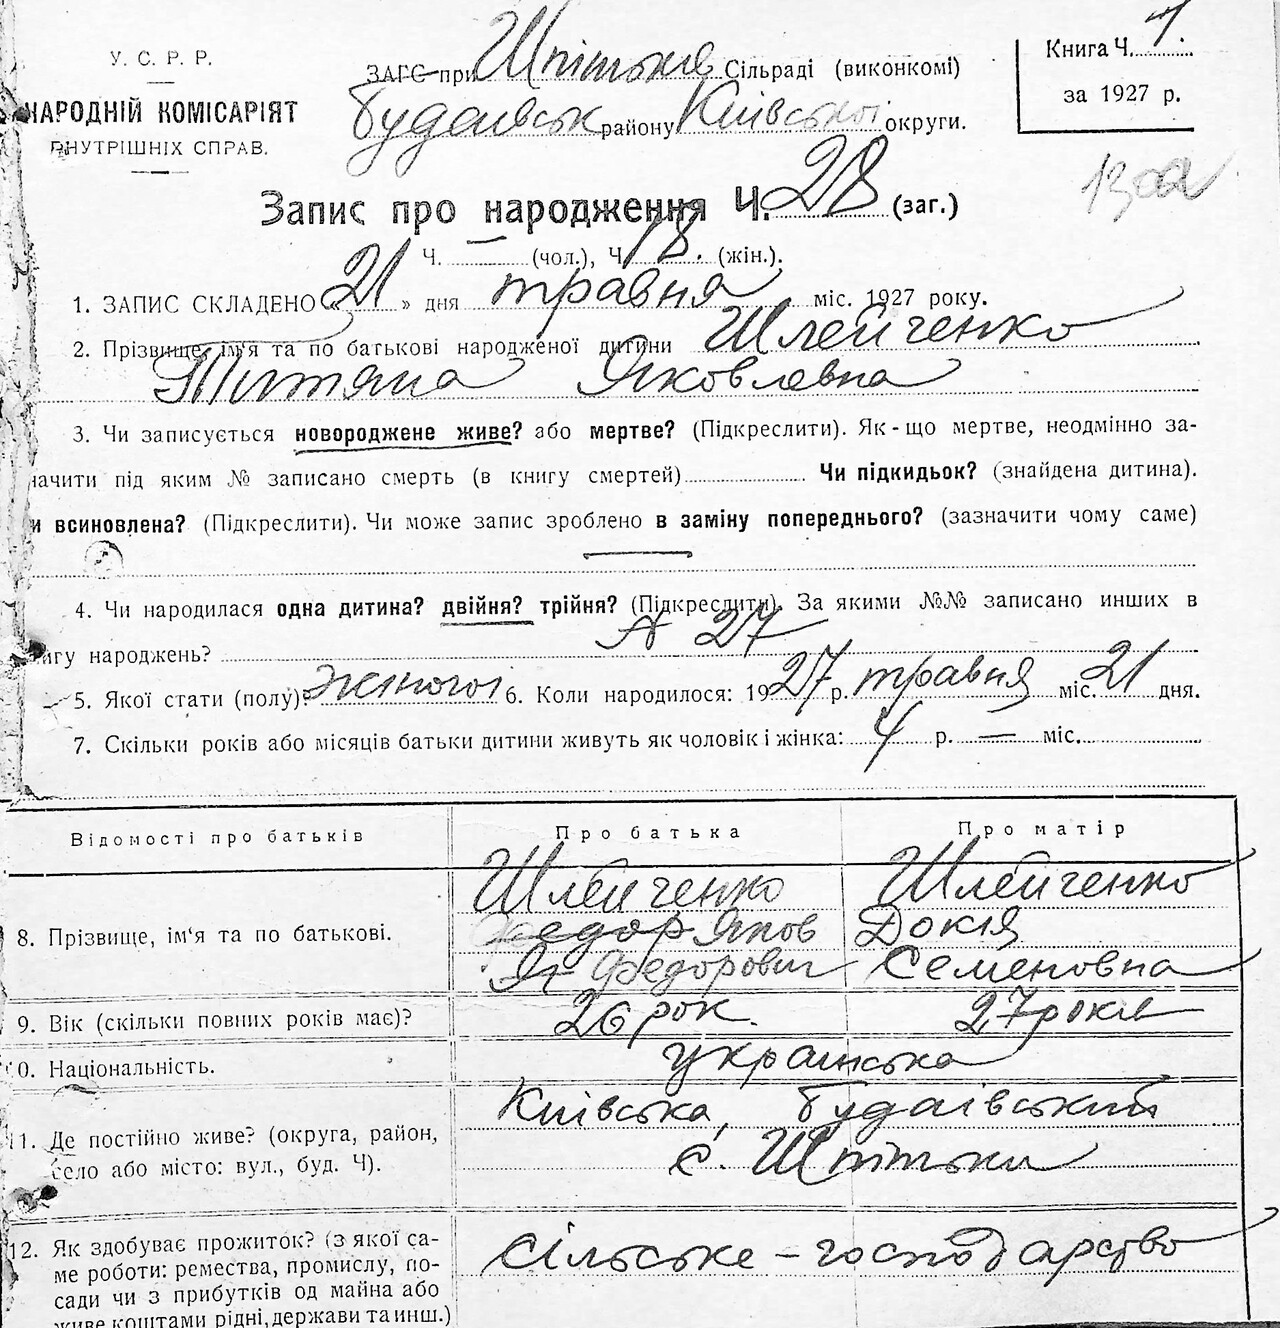 У. С. Р. Р.
НАРОДНІЙ КОМІСАРІЯТ
ВНУТРІШНІХ СПРАВ.
ЗАГС при Шпітьків Сільраді (виконкомі)
Будаївськ району Київської округи.
Книга Ч. 1.
за 1927 р.
Запис про народження Ч. 28 (заг.)
Ч. — (чол.), Ч. 18. (жін.).
1. ЗАПИС СКЛАДЕНО «21» дня травня міс. 1927 року.
2. Прізвище, ім'я та по батькові народженої дитини Шлейченко
Титяна Яковлевна
3. Чи записується новороджене живе? або мертве? (Підкреслити). Як-що мертве, неодмінно за-
начити під яким № записано смерть (в книгу смертей) Чи підкидьок? (знайдена дитина).
и всиновлена? (Підкреслити). Чи може запис зроблено в заміну попереднього? (зазначити чому саме)
—
4. Чи народилася одна дитина? двійня? трійня? (Підкреслити). За якими №№ записано инших в
игу народжень? № 27
5. Якої стати (полу)? жіночої 6. Коли народилося: 1927 р. травня міс. 21 дня.
7. Скільки років або місяців батьки дитини живуть як чоловік і жінка: 4 р. — міс.
Відомості про батьків Про батька Про матір
8. Прізвище, ім'я та по батькові. Шлейченко Шлейченко
Федор Яков Докія
Як Федорович Семеновна
9. Вік (скільки повних років має)? 26 рок. 27 років
0. Національність. українська
11. Де постійно живе? (округа, район, Київська, Будаївський
село або місто: вул., буд. Ч). с. Шпітьки
12. Як здобуває прожиток? (з якої са- сільське-господарство
ме роботи: ремества, промислу, по-
сади чи з прибутків од майна або
живе коштами рідні, держави та инш.)